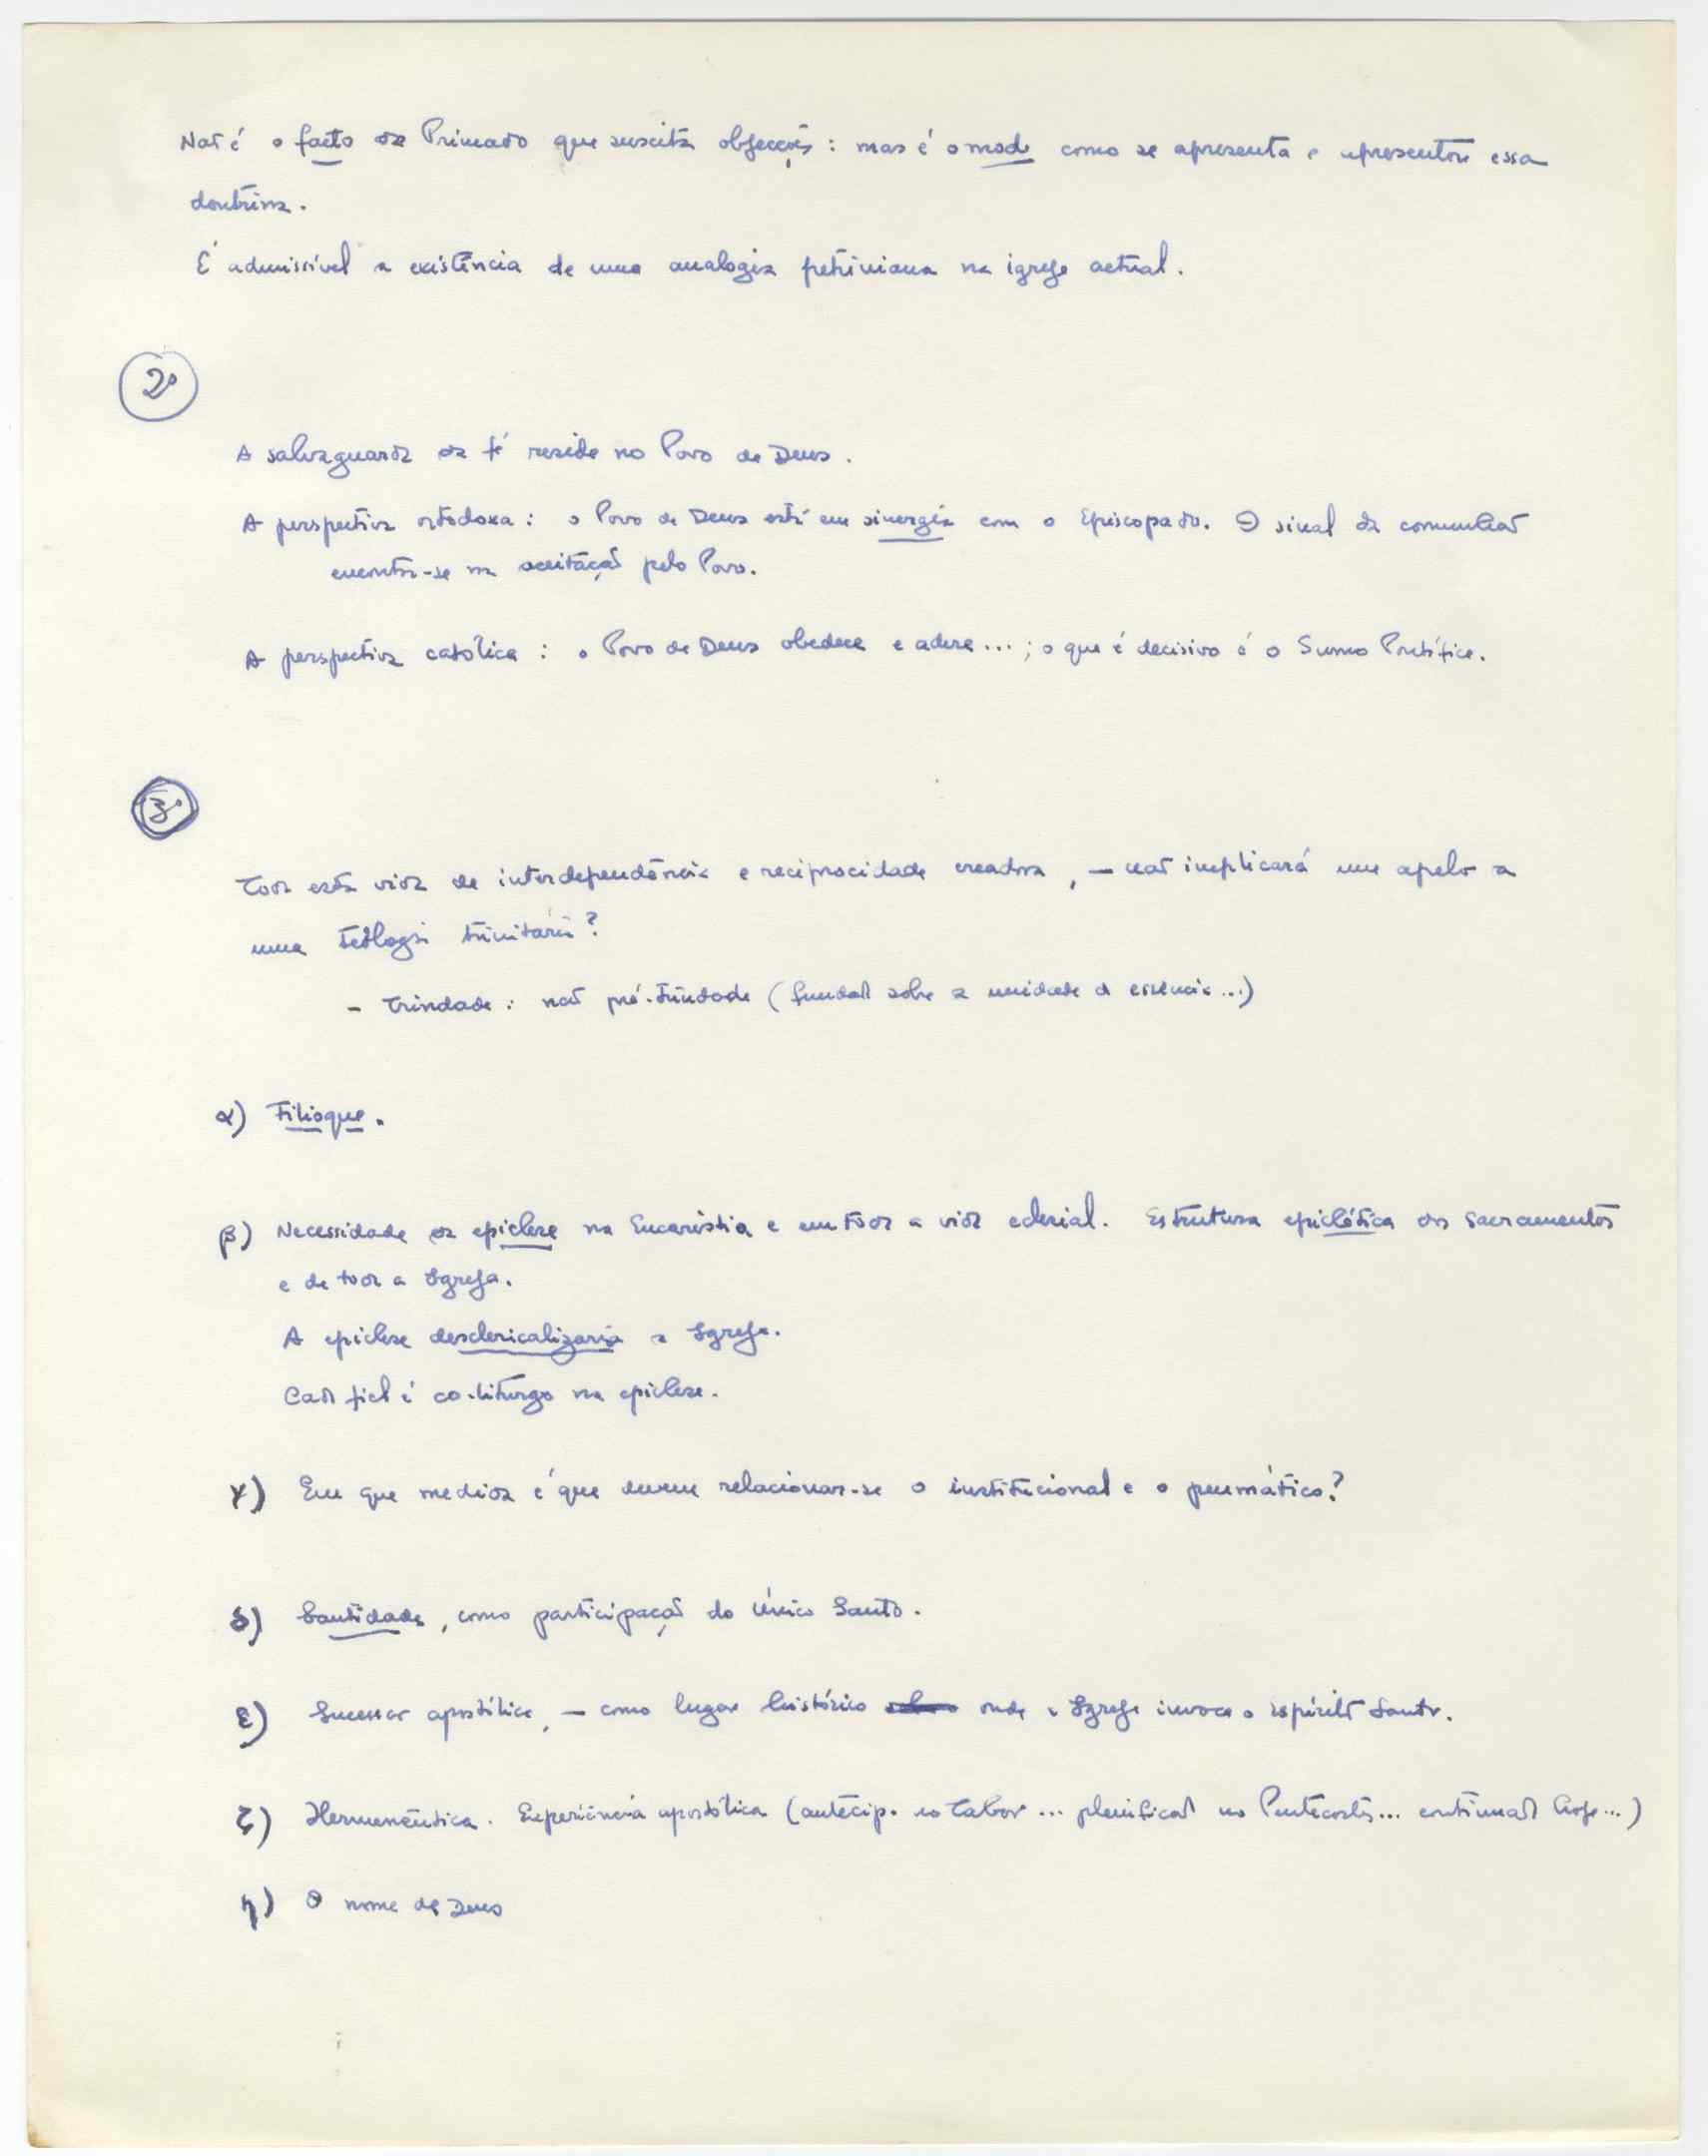 Não é o facto da Primado que suscita objecções : mas é o modo como se apresenta e apresentou essa
doutrina.
É admissível a existência de uma analogia petriniana na igreja actual.
2º
A salvaguarda da fé reside no Povo de Deus.
A perspectiva ortodoxa : o Povo de Deus está em sinergia com o Episcopado. O sinal da comunhão
encontra-se na aceitação pelo Povo.
A perspectiva católica : o Povo de Deus obedece e adere... ; o que é decisivo é o Sumo Pontífice.
3º
Toda esta vida de interdependência e reciprocidade creadora, — não implicará um apelo a
uma teologia trinitária?
- Trindade : não pré-trindade (fundada sobre a unidade da essência...)
α) Filioque.
β) Necessidade da epiclese na Eucaristia e em toda a vida eclesial. Estrutura epiclética dos Sacramentos
e de toda a Igreja.
A epiclese desclericalizaria a Igreja.
Cada fiel é co-liturgo na epiclese.
γ) Em que medida é que devem relacionar-se o institucional e o pneumático?
δ) Santidade, como participação do Único Santo.
ε) Sucessão apostólica, — como lugar histórico onde a Igreja invoca o Espírito Santo.
ζ) Hermenêutica. Experiência apostólica (antecip. no Tabor ... plenificada no Pentecostes... continuada hoje...)
η) O nome de Deus